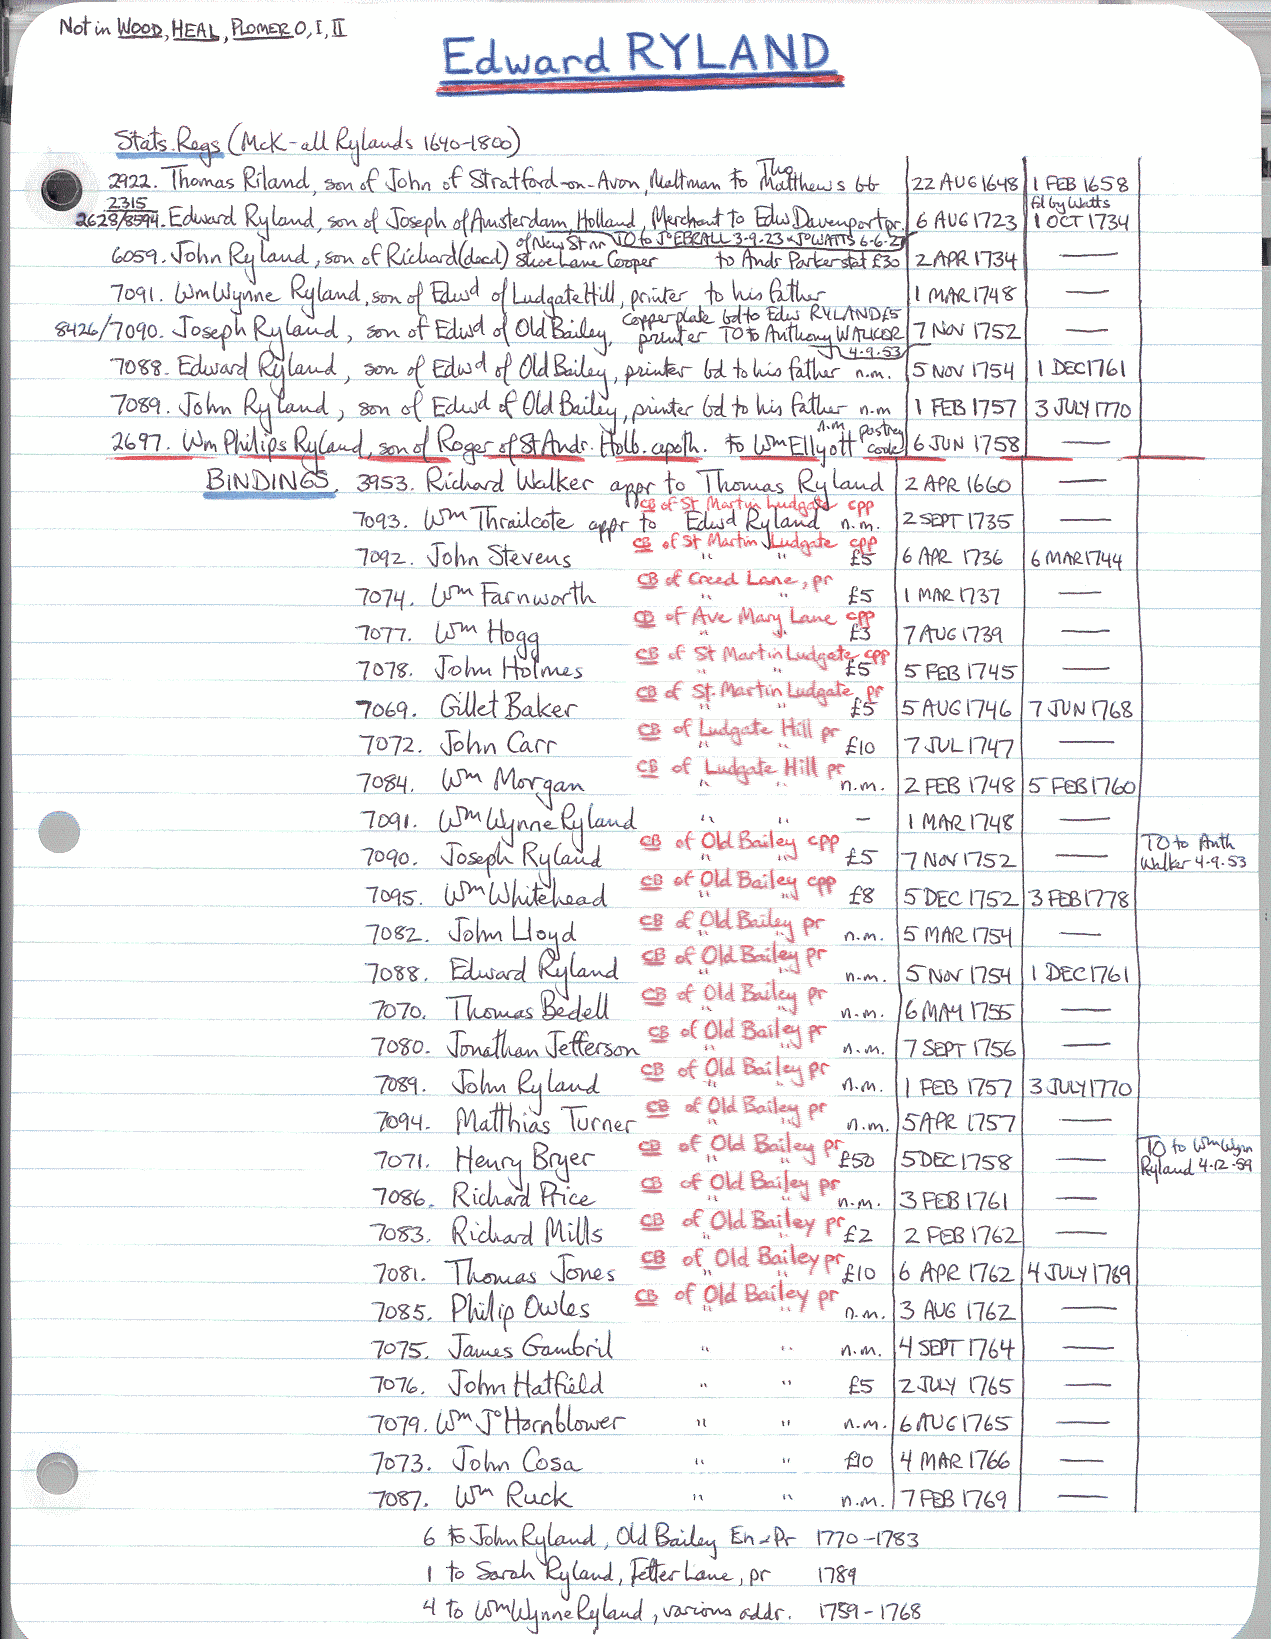 Not in WOOD, HEAL, PLOMER O, I, II
Edward RYLAND
Stats. Regs (McK - all Rylands 1640-1800)
2922. Thomas Riland, son of John of Stratford-on-Avon, Maltman to Tho Matthews bb 22 AUG 1648 1 FEB 1658
2315
2628/8594. Edward Ryland, son of Joseph of Amsterdam, Holland, Merchant to Edw Davenport pr. 6 AUG 1723 fd by Watts 1 OCT 1734
TO to Jo EBRALL 3-9-23 & Jo WATTS 6-6-27
6059. John Ryland, son of Richard (decd) of New St nr Shoe Lane Cooper to Andr Parker stat £30 2 APR 1734 —
7091. Wm Wynne Ryland, son of Edwd of Ludgate Hill, printer to his father 1 MAR 1748 —
8426/7090. Joseph Ryland, son of Edwd of Old Bailey, copperplate printer bd to Edw RYLAND £5 TO to Anthony WALKER 4-9-53 7 NOV 1752 —
7088. Edward Ryland, son of Edwd of Old Bailey, printer bd to his father n.m. 5 NOV 1754 1 DEC 1761
7089. John Ryland, son of Edwd of Old Bailey, printer bd to his father n.m 1 FEB 1757 3 JULY 1770
2697. Wm Philips Ryland, son of Roger of St Andr. Holb. apoth. to Wm Ellyott n.m. pastry cook 6 JUN 1758 —
BINDINGS. 3953. Richard Walker appr to Thomas Ryland 2 APR 1660 —
CB of St Martin Ludgate cpp
7093. Wm Thrailcote appr to Edwd Ryland n.m. 2 SEPT 1735 —
CB of St Martin Ludgate cpp
7092. John Stevens " " £5 6 APR 1736 6 MAR 1744
CB of Creed Lane, pr
7074. Wm Farnworth " " £5 1 MAR 1737 —
CB of Ave Mary Lane cpp
7077. Wm Hogg " " £3 7 AUG 1739 —
CB of St Martin Ludgate cpp
7078. John Holmes " " £5 5 FEB 1745 —
CB of St. Martin Ludgate pr
7069. Gillet Baker " " £5 5 AUG 1746 7 JUN 1768
CB of Ludgate Hill pr
7072. John Carr " " £10 7 JUL 1747 —
CB of Ludgate Hill pr
7084. Wm Morgan " " n.m. 2 FEB 1748 5 FEB 1760
7091. Wm Wynne Ryland " " — 1 MAR 1748 —
CB of Old Bailey cpp
7090. Joseph Ryland " " £5 7 NOV 1752 — TO to Anth Walker 4-9-53
CB of Old Bailey cpp
7095. Wm Whitehead " " £8 5 DEC 1752 3 FEB 1778
CB of Old Bailey pr
7082. John Lloyd " " n.m. 5 MAR 1754 —
CB of Old Bailey pr
7088. Edward Ryland " " n.m. 5 NOV 1754 1 DEC 1761
CB of Old Bailey pr
7070. Thomas Bedell " " n.m. 6 MAY 1755 —
CB of Old Bailey pr
7080. Jonathan Jefferson " " n.m. 7 SEPT 1756 —
CB of Old Bailey pr
7089. John Ryland " " n.m. 1 FEB 1757 3 JULY 1770
CB of Old Bailey pr
7094. Matthias Turner " " n.m. 5 APR 1757 —
CB of Old Bailey pr
7071. Henry Bryer " " £50 5 DEC 1758 — TO to Wm Wynn Ryland 4-12-59
CB of Old Bailey pr
7086. Richard Price " " n.m. 3 FEB 1761 —
CB of Old Bailey pr
7083. Richard Mills " " £2 2 FEB 1762 —
CB of Old Bailey pr
7081. Thomas Jones " " £10 6 APR 1762 4 JULY 1769
CB of Old Bailey pr
7085. Philip Owles " " n.m. 3 AUG 1762 —
7075. James Gambril " " n.m. 4 SEPT 1764 —
7076. John Hatfield " " £5 2 JULY 1765 —
7079. Wm Jo Hornblower " " n.m. 6 AUG 1765 —
7073. John Cosa " " £10 4 MAR 1766 —
7087. Wm Ruck " " n.m. 7 FEB 1769 —
6 to John Ryland, Old Bailey En & Pr 1770-1783
1 to Sarah Ryland, Fetter Lane, pr 1789
4 to Wm Wynne Ryland, various addr. 1759-1768